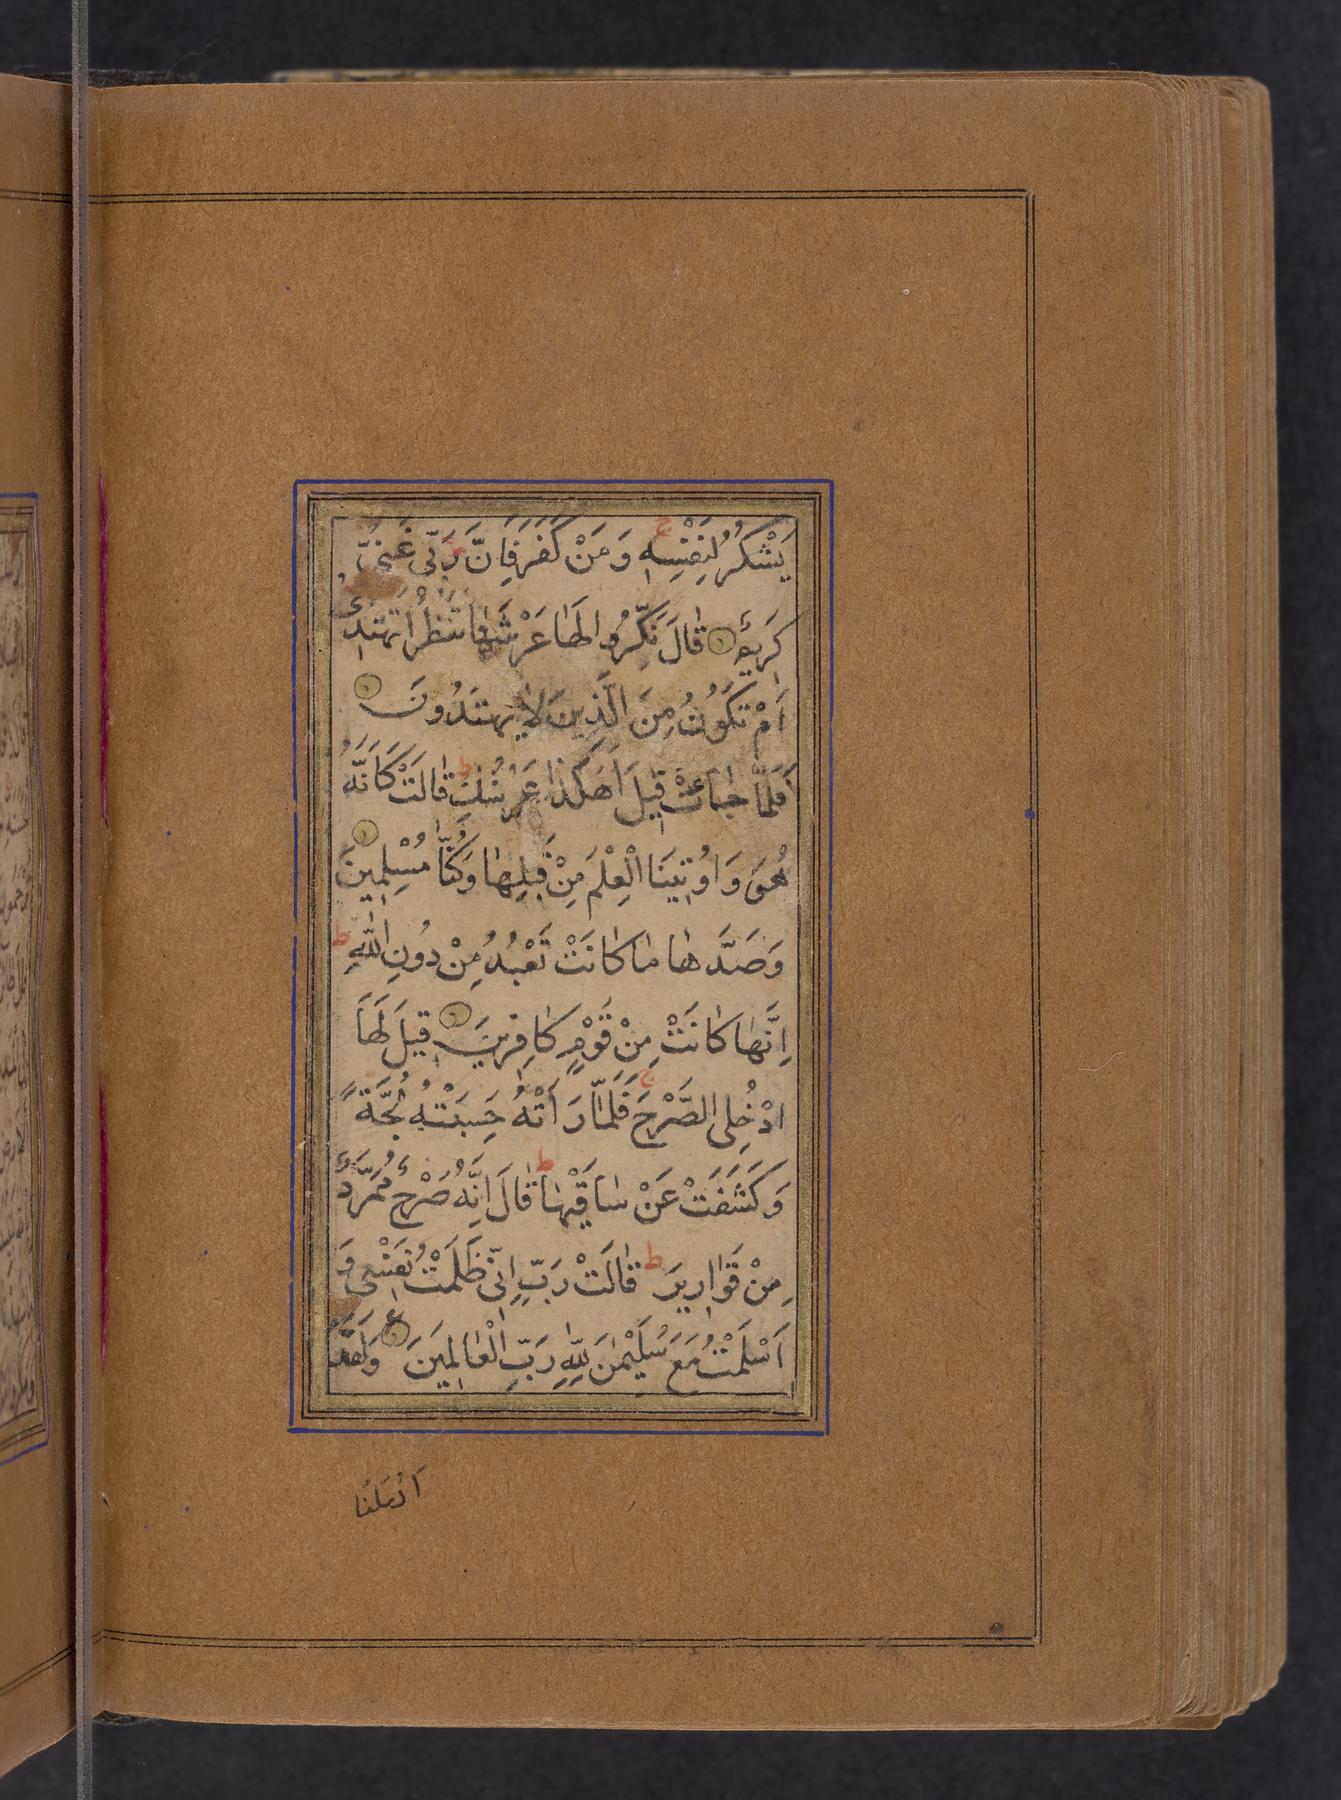 يَشْكُرُ لِنَفْسِهِ ج وَمَنْ كَفَرَ فَاِنَّ رَبّى غَنِىٌّ
كَرِيمٌ قالَ نَكِّرُوا لَها عَرْشَها نَنْظُرْ اَتَهْتَدى
اَمْ تَكُونُ مِنَ الَّذِينَ لا يَهْتَدُونَ
فَلَمّا جاءَتْ قِيلَ اَهكَذا عَرْشُكِ ط قالَتْ كَاَنَّهُ
هُوَ وَاُوتِينَا الْعِلْمَ مِنْ قَبْلِها وَكُنّا مُسْلِمِينَ
وَصَدَّها ما كانَتْ تَعْبُدُ مِنْ دُونِ اللّهِ ط
اِنَّها كانَتْ مِنْ قَوْمٍ كافِرِينَ قِيلَ لَهَا
ادْخُلِى الصَّرْحَ ج فَلَمّا رَاَتْهُ حَسِبَتْهُ لُجَّةً
وَكَشَفَتْ عَنْ ساقَيْها ط قالَ اِنَّهُ صَرْحٌ مُمَرَّدٌ
مِنْ قَوارِيرَ ط قالَتْ رَبِّ اِنّى ظَلَمْتُ نَفْسِى وَ
اَسْلَمْتُ مَعَ سُلَيْمنَ لِلّهِ رَبِّ الْعالَمِينَ ع وَلَقَدْ
اَرْسَلْنا